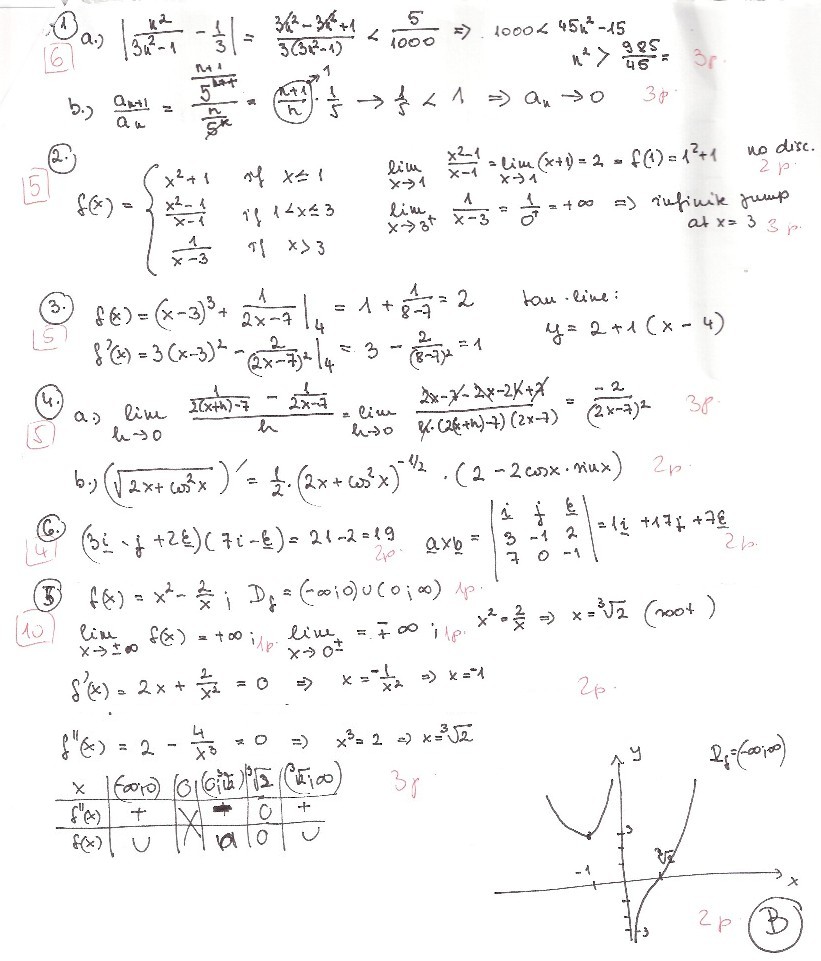 ① a.) | n²/(3n²-1) - 1/3 | = (3n²-3n²+1)/(3(3n²-1)) < 5/1000 ⇒ 1000 < 45n²-15
6 n² > 985/45 = 3p.
b.) a_{n+1}/a_n = ((n+1)/5^{n+1})/(n/5^n) = (n+1)/n → 1 · 1/5 → 1/5 < 1 ⇒ a_n → 0 3p.
②. x²+1 if x ≤ 1 lim x→1 (x²-1)/(x-1) = lim x→1 (x+1) = 2 = f(1) = 1²+1 no disc.
5 2p.
f(x) = { (x²-1)/(x-1) if 1<x≤3 lim x→3⁺ 1/(x-3) = 1/0⁺ = +∞ ⇒ infinite jump
1/(x-3) if x>3 at x=3 3p.
③. f(x) = (x-3)³ + 1/(2x-7) |₄ = 1 + 1/(8-7) = 2 tan. line:
5 y = 2+1(x-4)
f'(x) = 3(x-3)² - 2/(2x-7)² |₄ = 3 - 2/(8-7)² = 1
④. a.) lim h→0 (1/(2(x+h)-7) - 1/(2x-7))/h = lim h→0 (2x-7-2x-2h+7)/(h·(2(x+h)-7)(2x-7)) = -2/(2x-7)² 3p.
5
b.) (√(2x+cos²x))' = 1/2 · (2x+cos²x)^{-1/2} · (2-2cosx·sinx) 2p.
⑥. (3i - j + 2k)(7i-k) = 21-2 = 19 2p. a×b = | i j k | 3 -1 2 | 7 0 -1 | = 1i + 17j + 7k 2p.
4
⑤ f(x) = x² - 2/x ; D_f = (-∞;0)∪(0;∞) 1p.
10 lim x→±∞ f(x) = +∞ ; 1p. lim x→0± = ∓∞ ; 1p. x² = 2/x ⇒ x = ³√2 (root)
f'(x) = 2x + 2/x² = 0 ⇒ x = -1/x² ⇒ x = -1 2p.
f''(x) = 2 - 4/x³ = 0 ⇒ x³ = 2 ⇒ x = ³√2
x (-∞;0) 0 (0;³√2) ³√2 (³√2;∞) 3p
f''(x) + - 0 +
f(x) ∪ ∩ 0 ∪
y R_f = (-∞;∞)
3
-1 ³√2 x
-3 2p. B